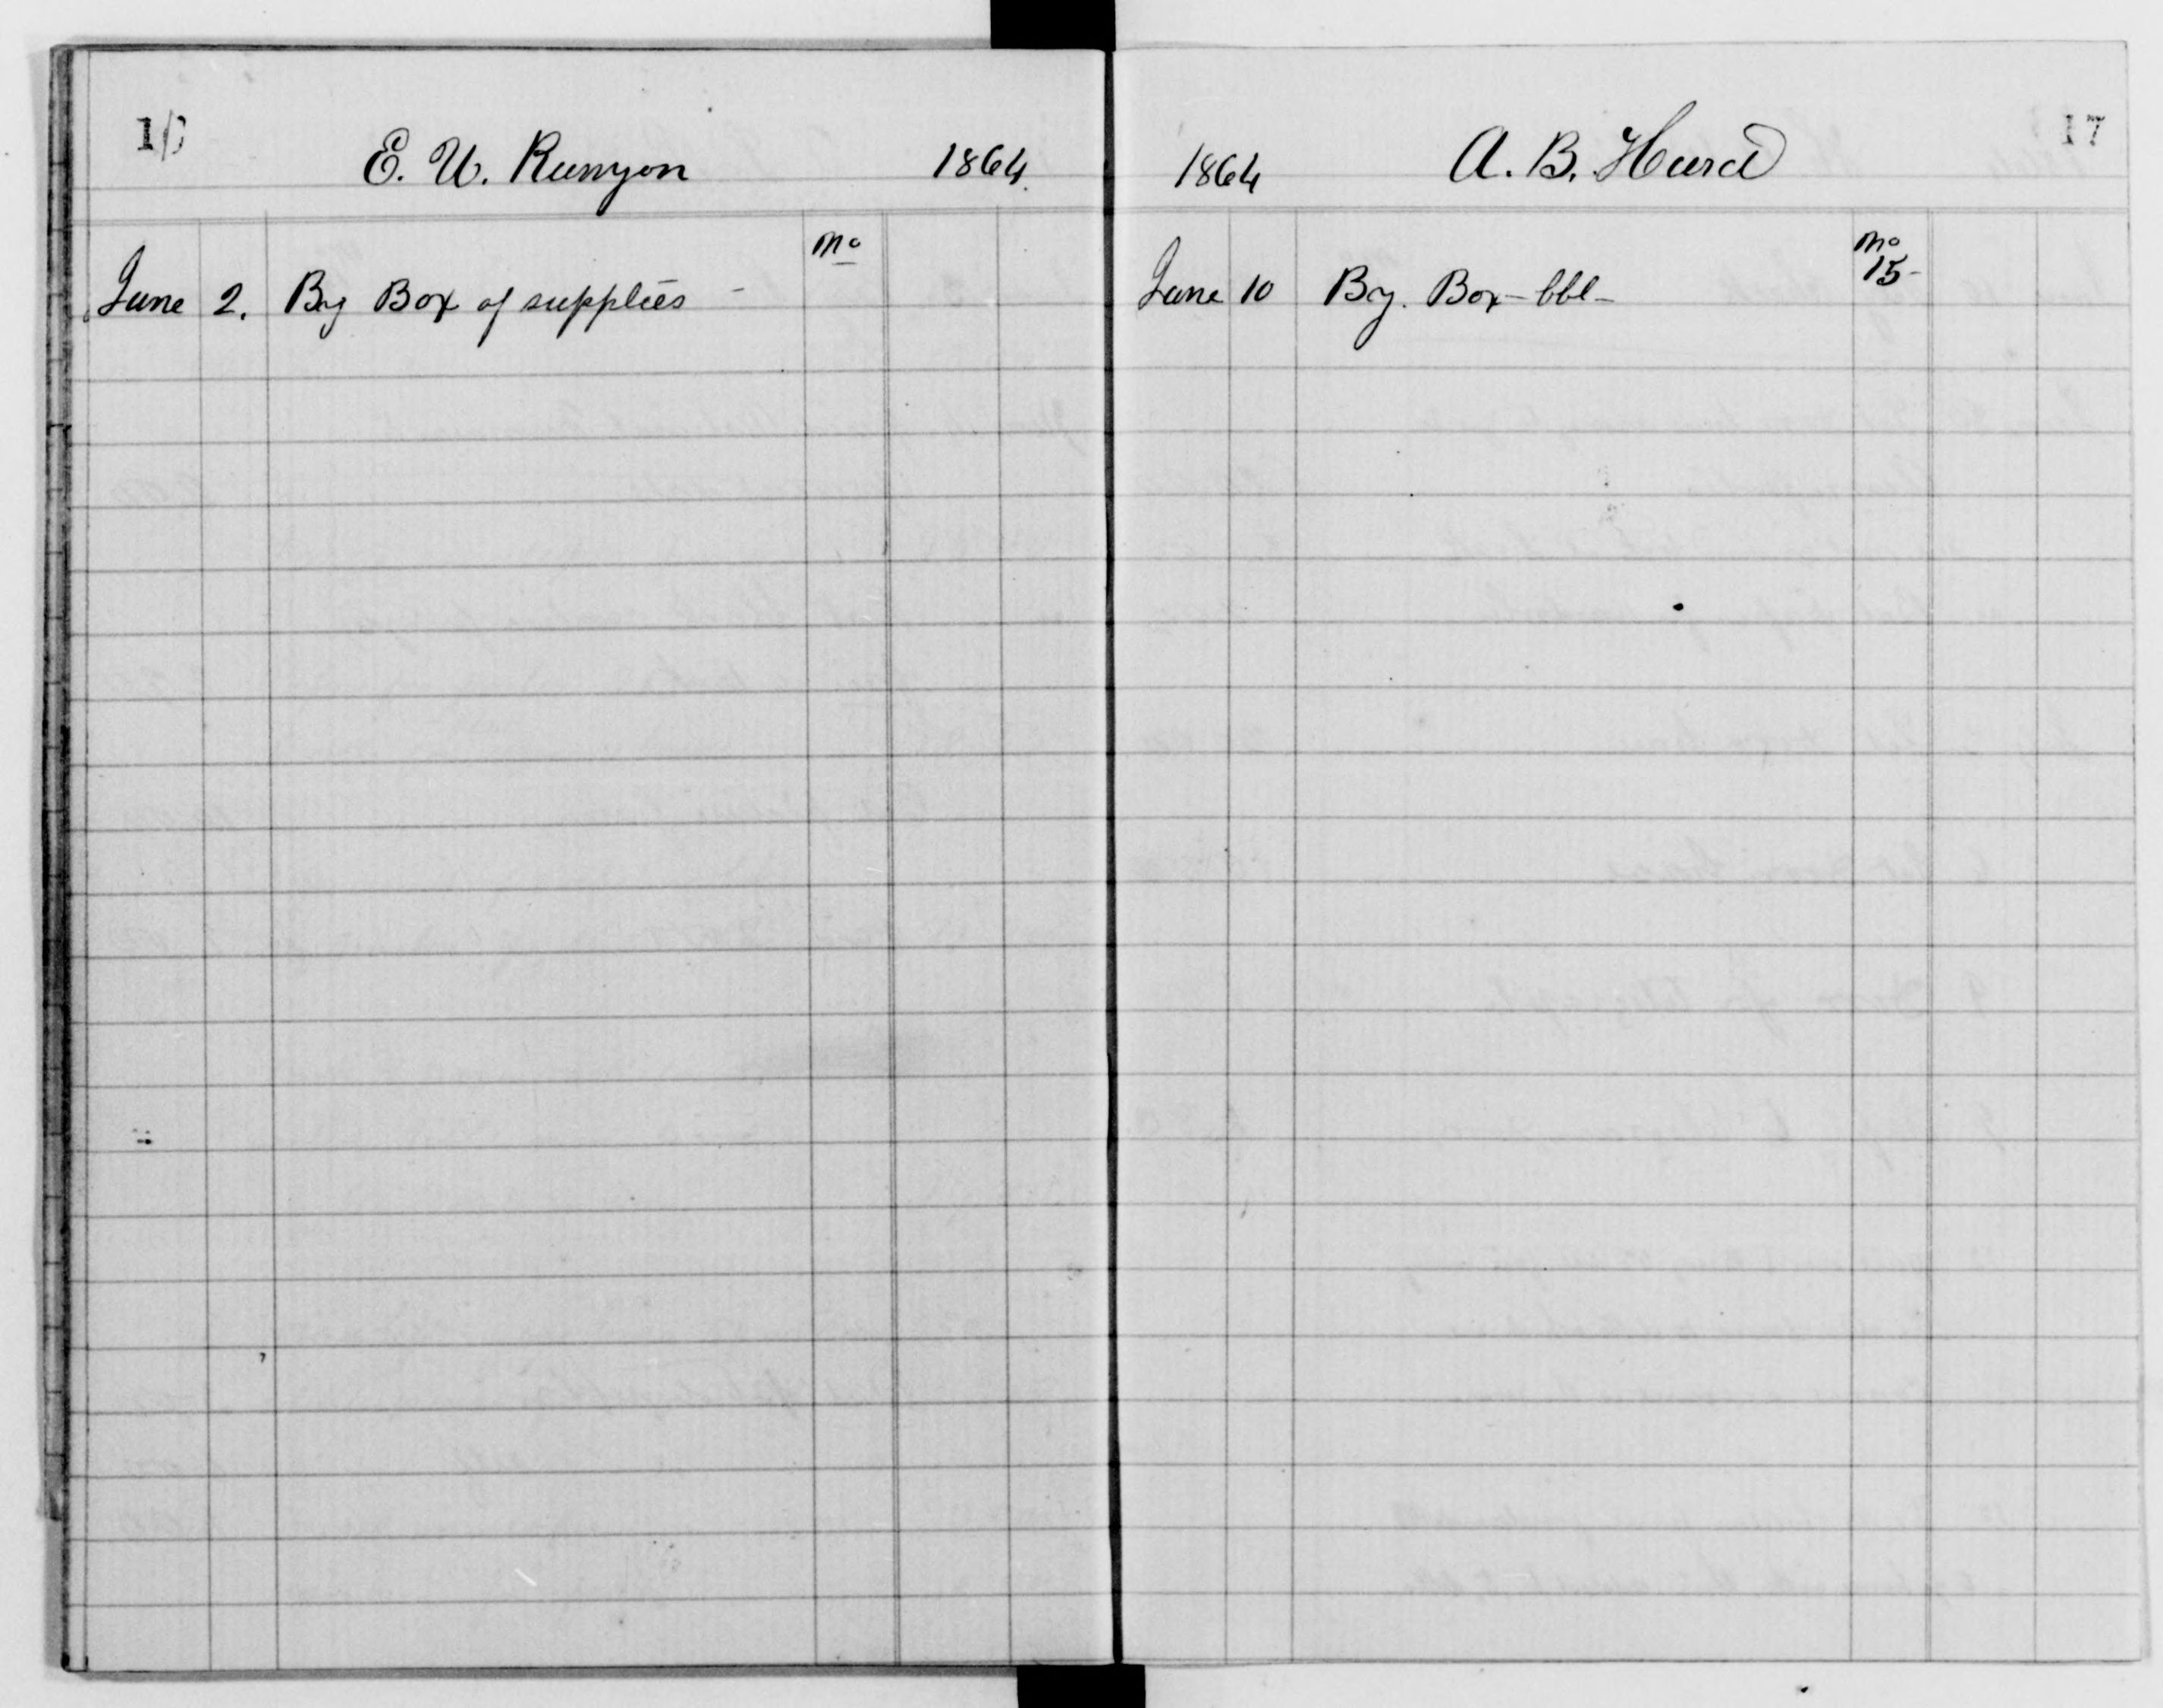 16
E. W. Runyon 1864.
Mo
June 2. By Box of supplies -
17
1864 A. B. Hurd
Mo
June 10 By. Box - bbl - 15-